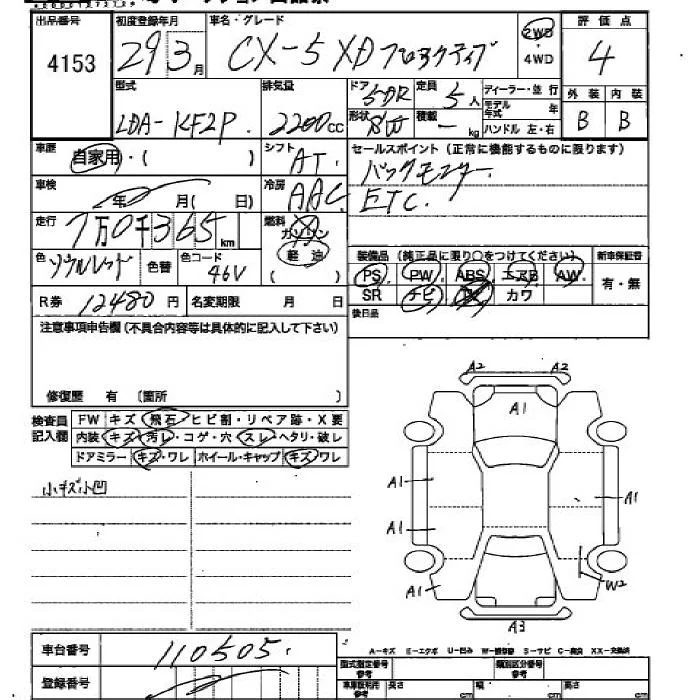 出品番号 初度登録年月 車名・グレード 評価点
4153 29 3月 CX-5 XD プロアクティブ 2WD・4WD 4
型式 排気量 ドア 5DR 定員 5人 ディーラー・並行 外装 内装
LDA-KF2P 2200cc 形状 SW 積載 - kg モデル年式 年 B B
ハンドル 左・右
車歴 自家用・( ) シフト AT セールスポイント (正常に機能するものに限ります)
車検 年 月( 日) 冷房 AAC バックモニター
ETC
走行 7万0千365km 燃料 ガソリン 軽油
色 ソウルレッド 色替 色コード 46V
装備品 (純正品に限り○をつけてください) 新車保証書
PS PW ABS エアB AW 有・無
SR ナビ カワ
R券 12480円 名変期限 月 日 後日品
注意事項申告欄(不具合内容等は具体的に記入して下さい)
修復歴 有 (箇所 )
検査員記入欄 FW キズ・飛石・ヒビ割・リペア跡・X要
内装 キズ・汚レ・コゲ・穴・スレ・ヘタリ・破レ
ドアミラー キズ・ワレ ホイール・キャップ キズ・ワレ
小キズ小凹
A2 A2
A1
A1 A1
A1
A1 W2
A3
A-キズ E-エクボ U-凹み W-補修跡 S-サビ C-腐食 XX-交換済
車台番号 110505
登録番号
型式指定番号 参考 類別区分番号 参考
長さ cm 幅 cm 高さ cm